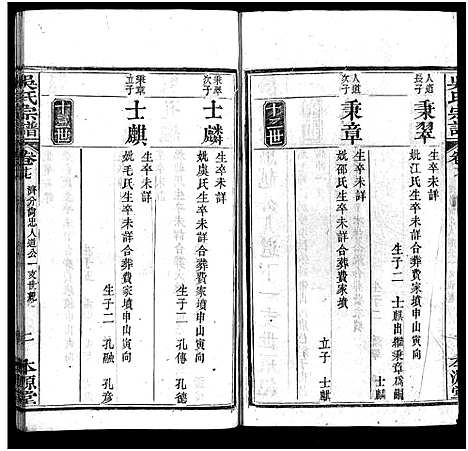 吳氏宗譜
人道長子
秉翠
生卒未詳
妣江氏生卒未詳合葬費家墳申山寅向
生子二 士麒出繼秉章爲嗣
士麟
人道次子
秉章
生卒未詳
妣邵氏生卒未詳合葬費家墳
立子 士麒
十二世
本源堂
秉翠次子
士麟
生卒未詳
妣虞氏生卒未詳合葬費家墳申山寅向
生子二 孔傳 孔德
秉章立子
士麒
生卒未詳
妣毛氏生卒未詳合葬費家墳申山寅向
生子二 孔融 孔彦
十三世
吳氏宗譜
卷七
濟分尚忠人道公一支世系
二
本源堂